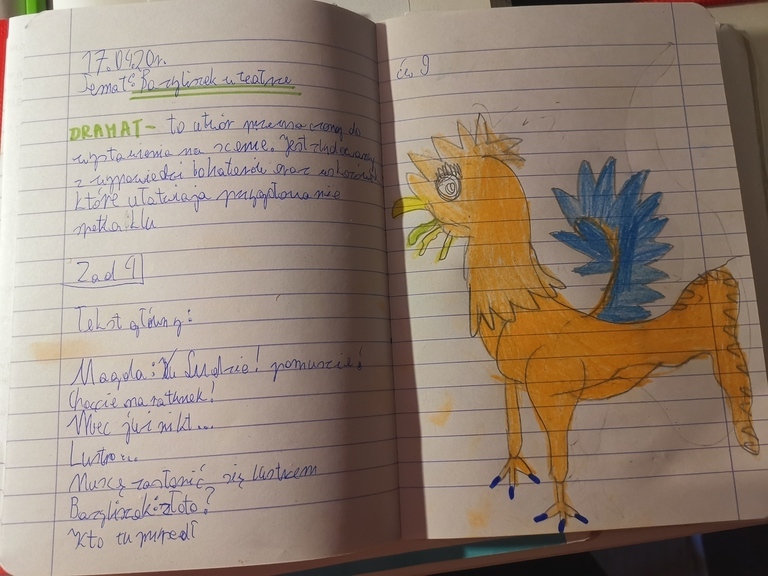 17.04.20r.
Temat: Bazyliszek w teatrze
DRAMAT- to utwór przeznaczony do
wystawienia na scenie. Jest zbudowany
z wypowiedzi bohaterów oraz
które ułatwiają przygotowanie
spektaklu
Zad 4
Tekst główny:
Magda: Ludzie! pomuszcie!
Choccie na ratunek!
Więc już nikt...
Lustro...
Muszę zasłonić się lustrem
Bazyliszek: złoto?
Kto tu
ćw. 9